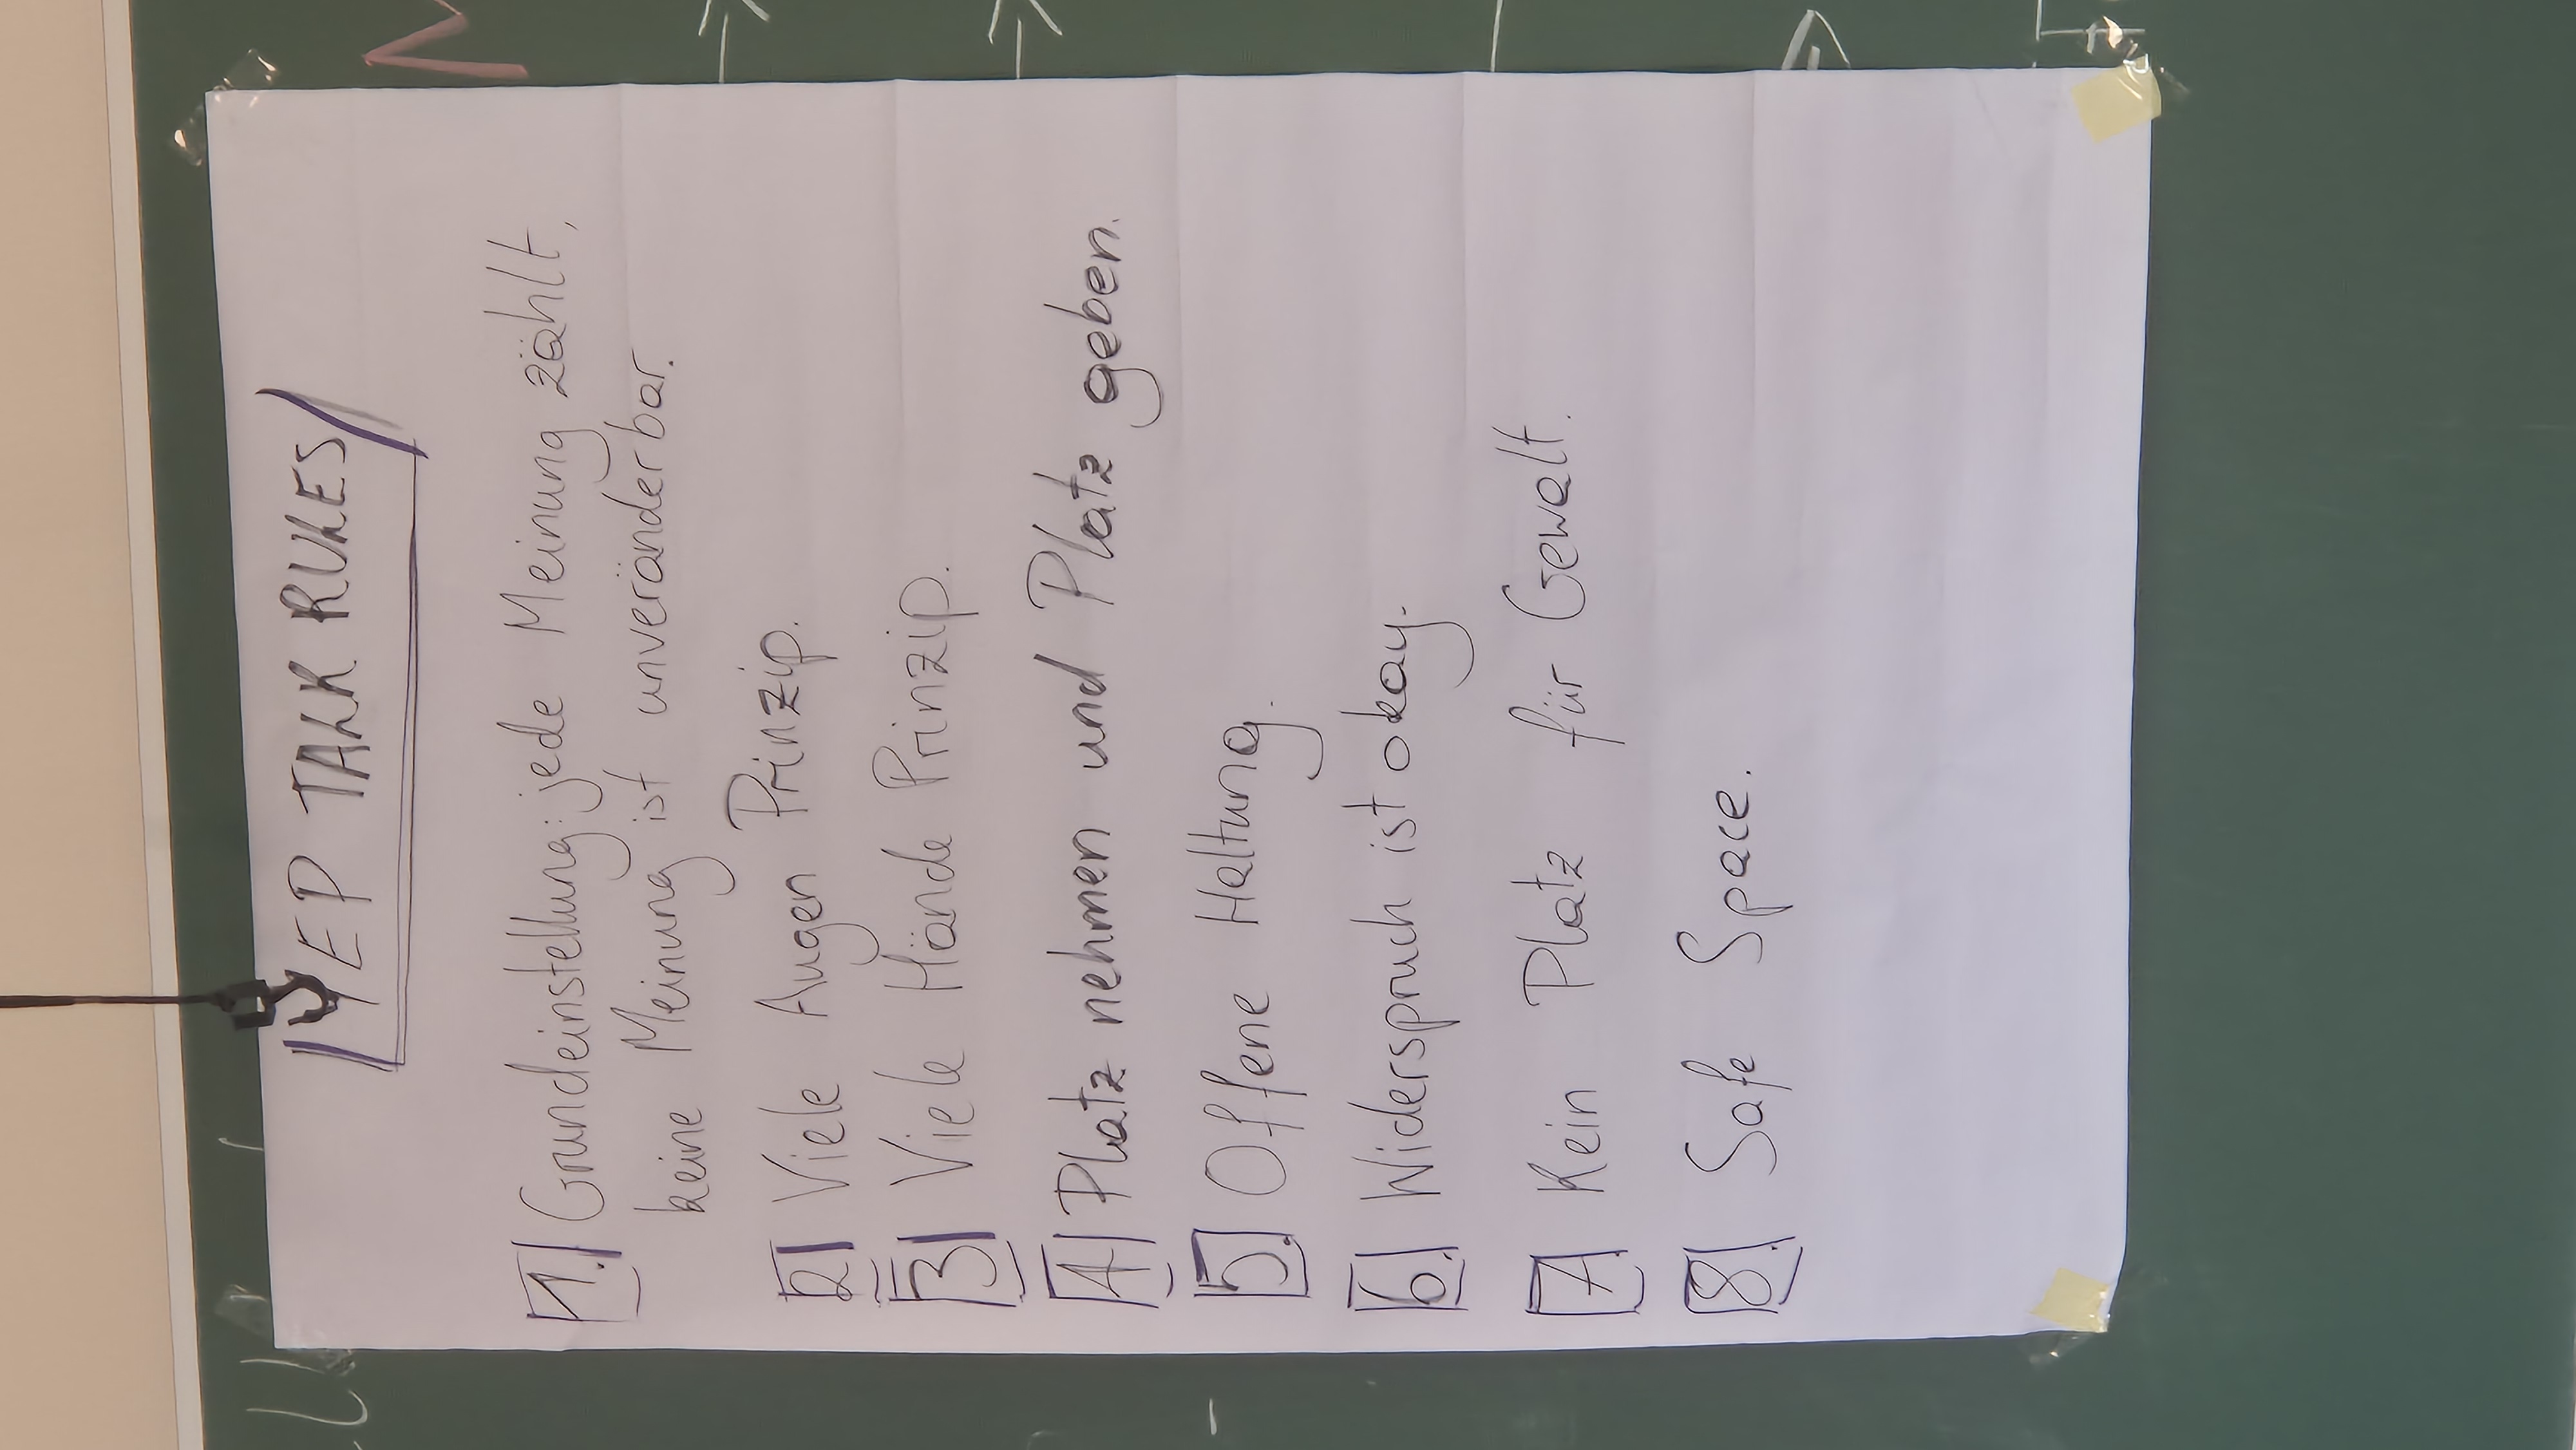 YEP TALK RULES
1. Grundeinstellung: jede Meinung zählt,
keine Meinung ist unveränderbar.
2. Viele Augen Prinzip.
3. Viele Hände Prinzip.
4. Platz nehmen und Platz geben.
5. Offene Haltung.
6. Widerspruch ist okay.
7. Kein Platz für Gewalt.
8. Safe Space.